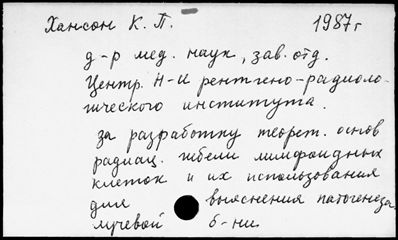 Хансон К. П. 1987г
д-р мед. наук, зав. отд.
Центр. Н-И рентгено-радиоло-
гического института.
за разработку теорет. основ
радиац. гибели лимфоидных
клеток и их использования
для выяснения патогенеза
лучевой б-ни